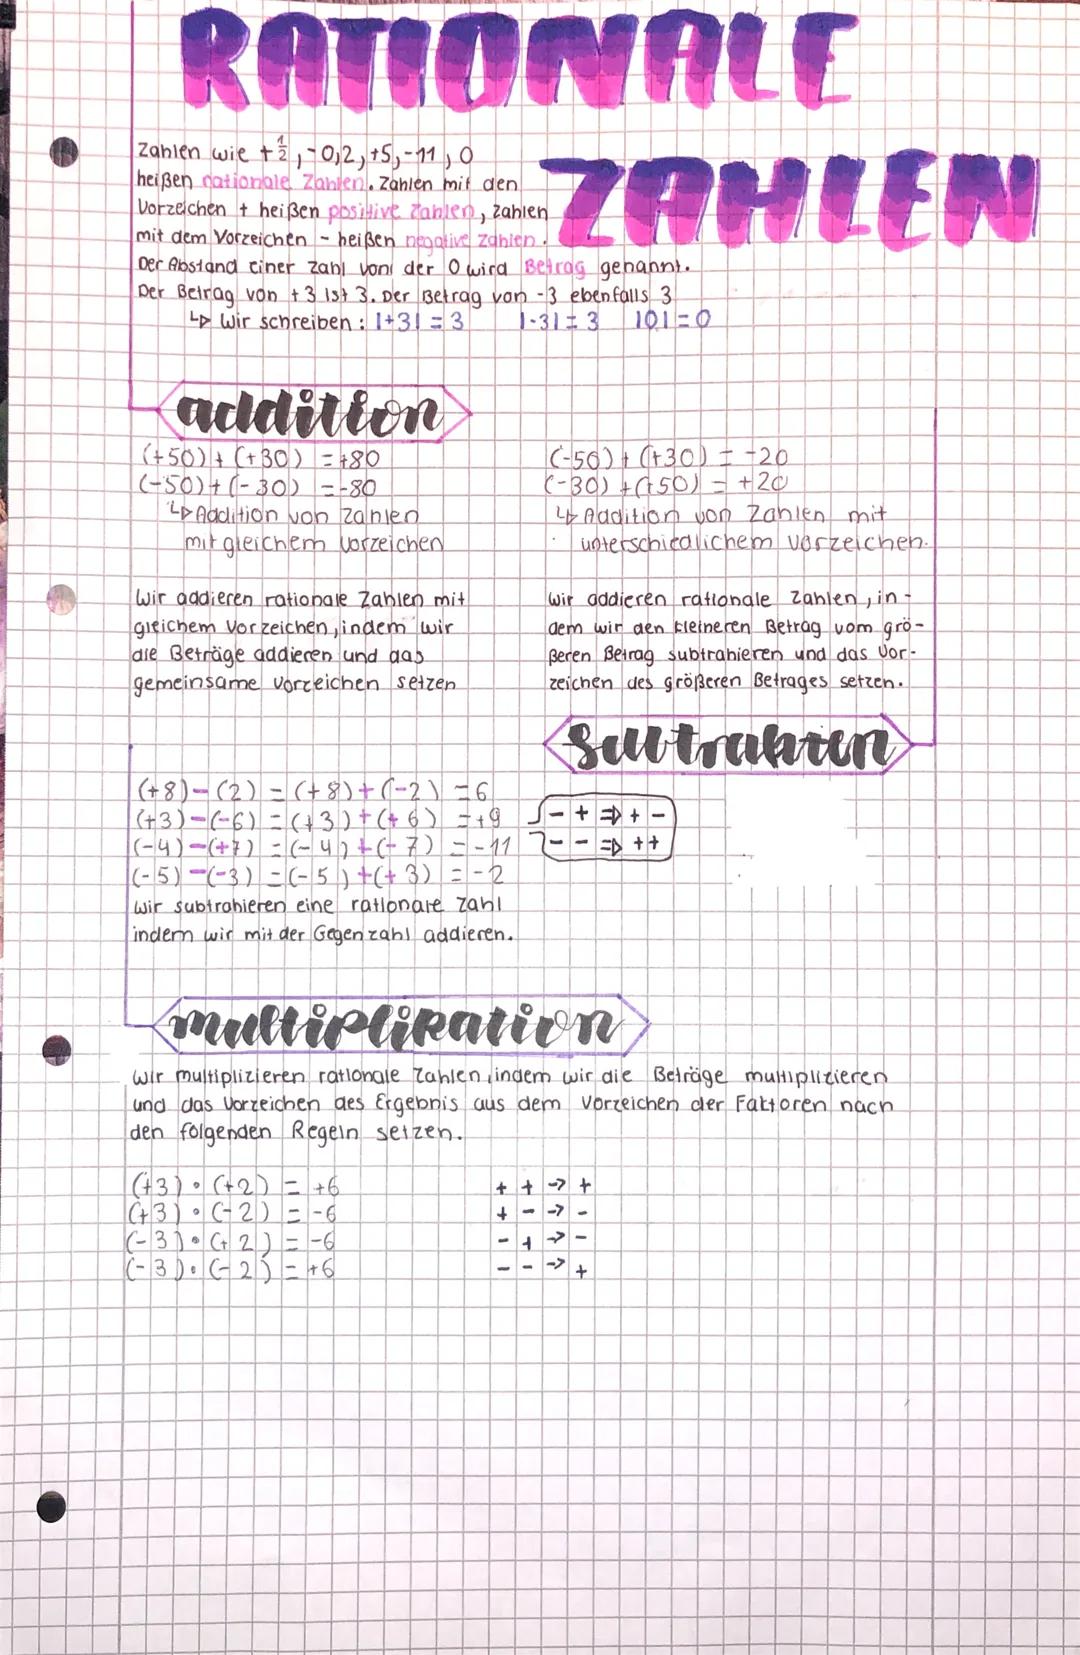 RATIONALE
ZAHLEN
Zahlen wie +½, -0,2, +5, -11, 0
heißen rationale Zahlen. Zahlen mit den
Vorzeichen + heißen positive Zahlen, Zahlen
mit dem Vorzeichen - heißen negative Zahlen.
Der Abstand einer Zahl von der 0 wird Betrag genannt.
Der Betrag von +3 ist 3. Der Betrag von -3 ebenfalls 3
↳ Wir schreiben: |+3| = 3 |-3| = 3 |0| = 0
addition
(+50) + (+30) = +80
(-50) + (-30) = -80
↳ Addition von Zahlen
mit gleichem Vorzeichen
Wir addieren rationale Zahlen mit
gleichem Vorzeichen, indem wir
die Beträge addieren und das
gemeinsame Vorzeichen setzen
(-50) + (+30) = -20
(-30) + (+50) = +20
↳ Addition von Zahlen mit
unterschiedlichem Vorzeichen.
Wir addieren rationale Zahlen, in-
dem wir den kleineren Betrag vom grö-
ßeren Betrag subtrahieren und das Vor-
zeichen des größeren Betrages setzen.
(+8) - (2) = (+8) + (-2) = 6
(+3) - (-6) = (+3) + (+6) = +9
(-4) - (+7) = (-4) + (-7) = -11
(-5) - (-3) = (-5) + (+3) = -2
- + ⇒ + -
- - ⇒ + +
Wir subtrahieren eine rationale Zahl
indem wir mit der Gegenzahl addieren.
multiplikation
Wir multiplizieren rationale Zahlen, indem wir die Beträge multiplizieren
und das Vorzeichen des Ergebnis aus dem Vorzeichen der Faktoren nach
den folgenden Regeln setzen.
(+3) • (+2) = +6
(+3) • (-2) = -6
(-3) • (+2) = -6
(-3) • (-2) = +6
+ + → +
+ - → -
- + → -
- - → +